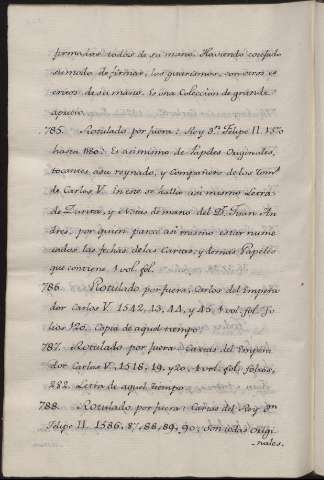 firmadas todas de su mano. Haviendo cotejado
su modo de firmar, los guarismos, con otros es
critos de su mano. Es una Coleccion de grande
aprecio.
785. Rotulado por fuera: Rey Dn. Felipe II. 1570
hasta 1580: Es asimismo de Papeles Originales,
tocantes a su reynado, y Compañero de los Toms.
de Carlos V. en este se halla asi mismo Letra
de Zurita, y Notas de mano del Dr. Juan An
dres, por quien parece asi mismo estar nume
rados las fechas de las Cartas, y demas Papeles
que contiene. 1 vol. fol.
786. Rotulado por fuera: Carlos del Empera
dor Carlos V. 1542, 43, 44, y 45. 1 vol. fol. Fo
lios 120. Copia de aquel tiempo.
787. Rotulado por fuera: Cartas del Empera
dor Carlos V. 1518, 19, y 20. 1 vol. fol. folios,
282. Letra de aquel tiempo.
788. Rotulado por fuera: Cartas del Rey Dn.
Felipe II. 1586, 87, 88, 89, 90. Son todas Origi
nales.